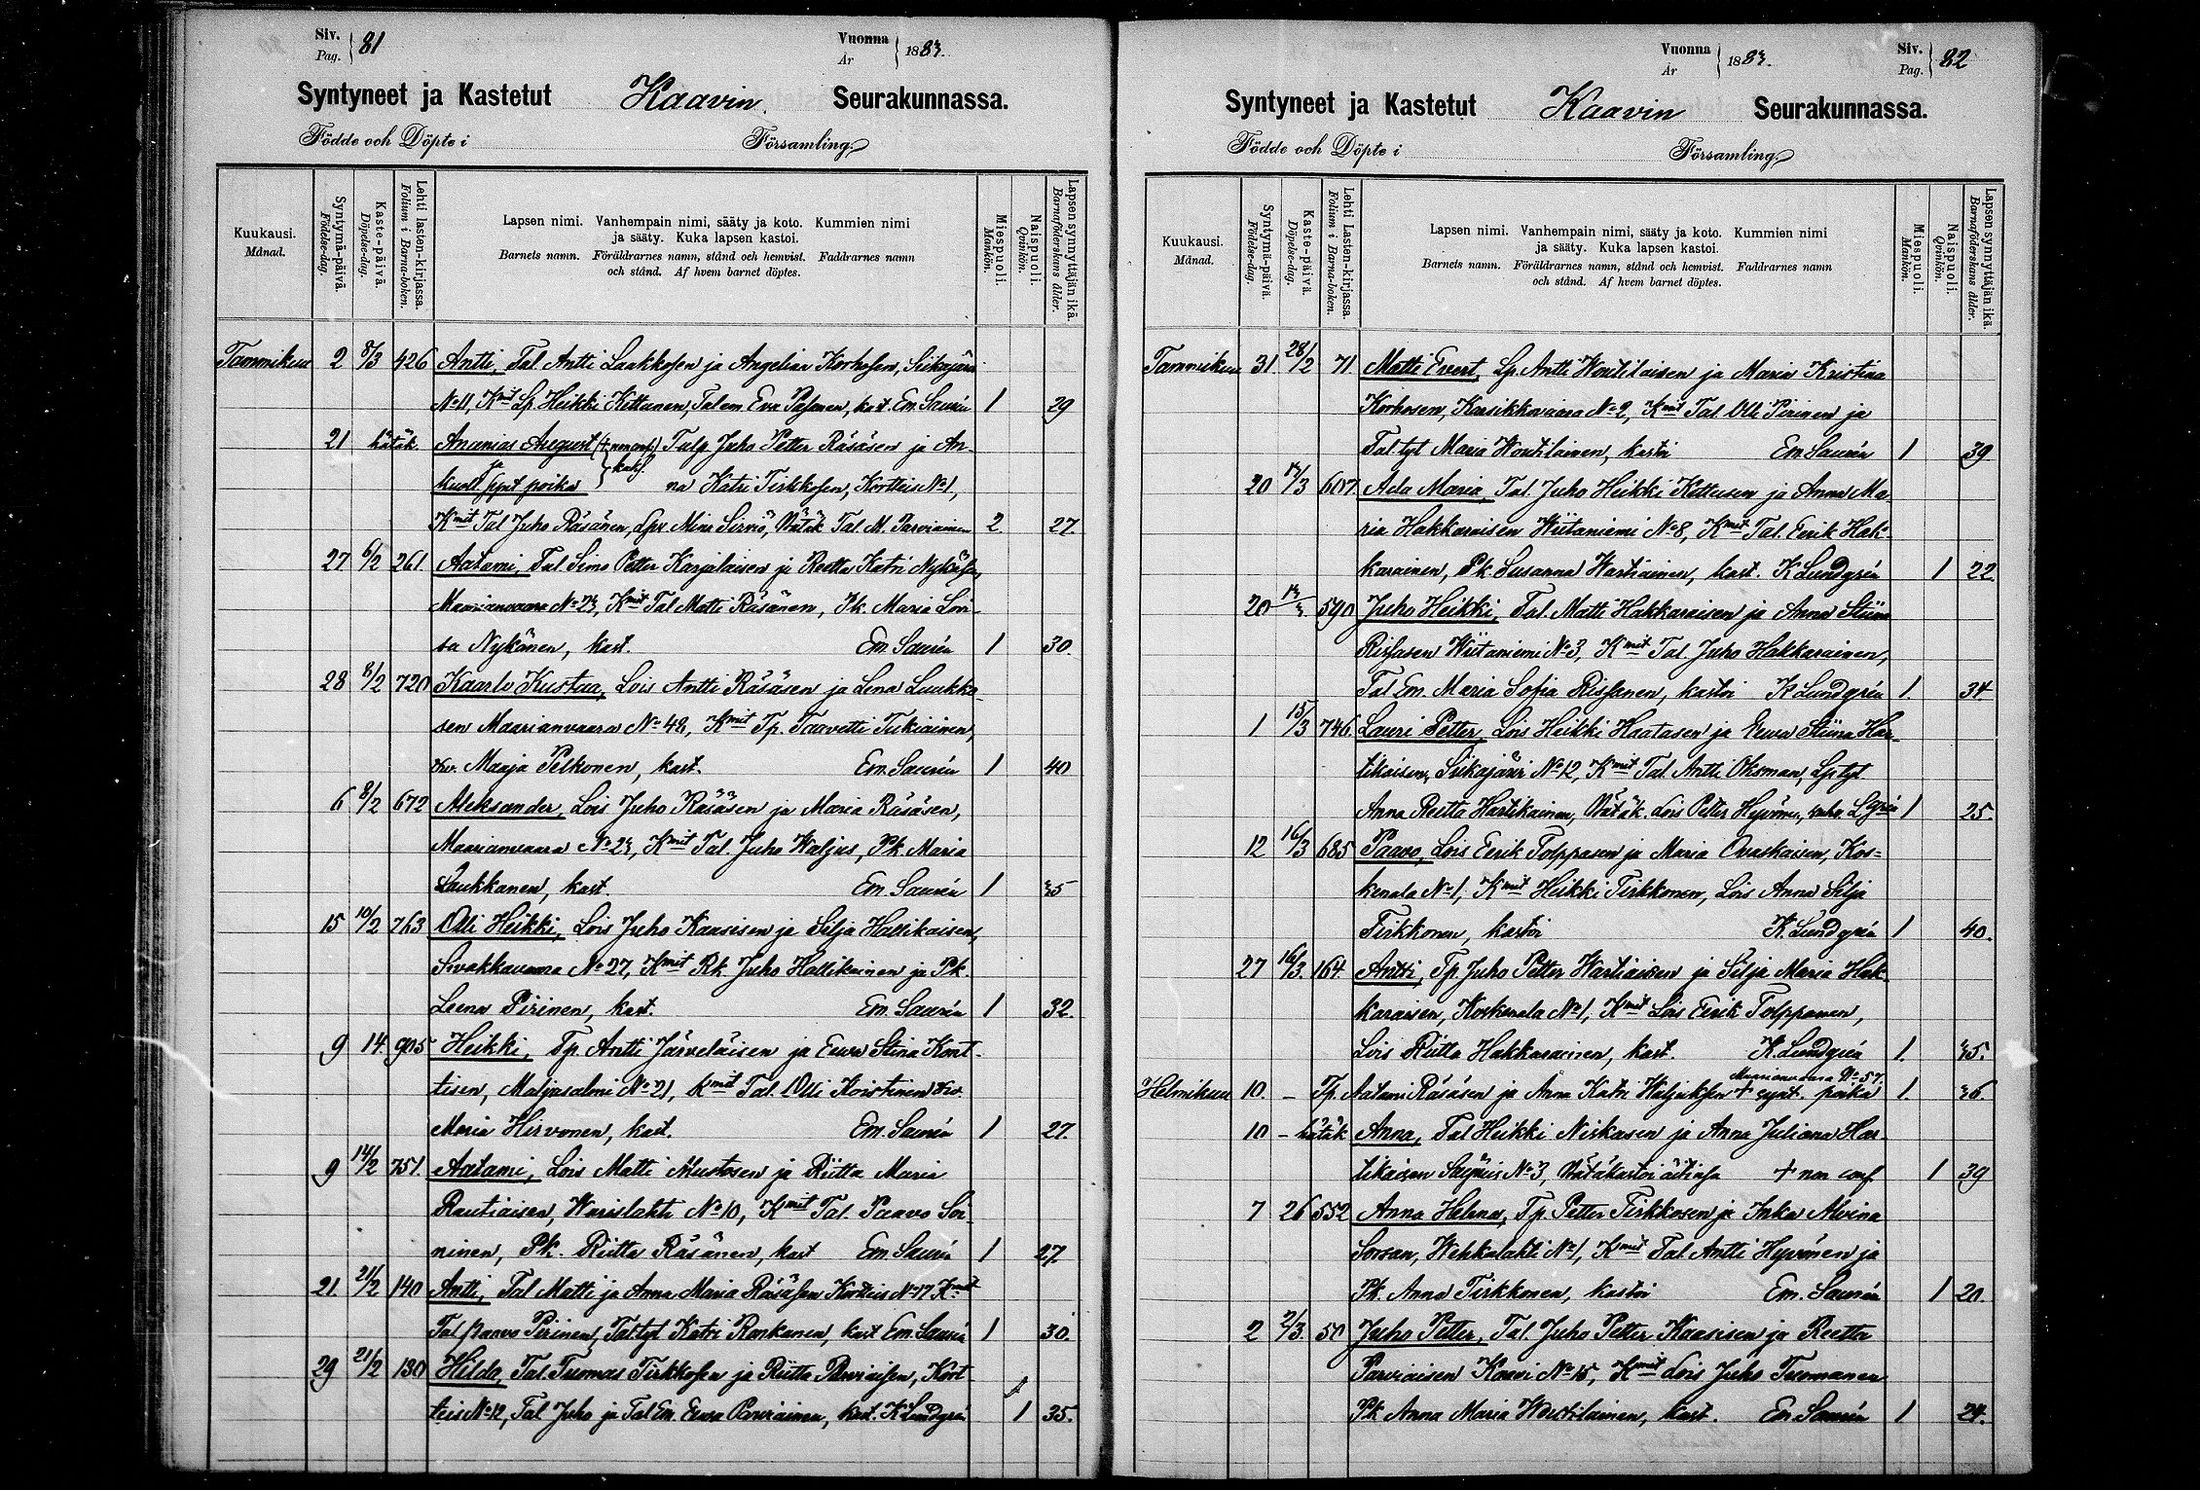 Siv. Pag. 81
Vuonna År 1883.
Syntyneet ja Kastetut Kaavin Seurakunnassa.
Födde och Döpte i Församling
Kuukausi. Månad.
Syntymä-päivä. Födelse-dag.
Kaste-päivä. Döpelse-dag.
Lehti lasten-kirjassa. Folium i Barna-boken.
Lapsen nimi. Vanhempain nimi, sääty ja koto. Kummien nimi
ja sääty. Kuka lapsen kastoi.
Barnets namn. Föräldrarnes namn, stånd och hemvist. Faddrarnes namn
och stånd. Af hvem barnet döptes.
Miespuoli. Mankön.
Naispuoli. Qvinkön.
Lapsen synnyttäjän ikä. Barnaföderskans ålder.
Tammikuu 2 8/3 426 Antti, Tal Antti Laakkosen ja Angelian Korhosen, Siikajärvi
No 11, Kmit Lp. Heikki Kettunen, Talem Eva Pasanen, kast. Em. Saurén 1 29
21 hätäk. Ananias August Talp Juho Petter Räsäsen ja An-
kuoll synt poika na Katri Tirkkosen, Kortteis No 1,
Kmit Tal Juho Räsänen, Lpv Mina Sirviö, Hätäk Tal M. Parviainen 2. 27.
27 6/2 261 Aatami, Tal Simo Petter Karjalaisen ja Reetta Katri Nykäsen,
Maarianvaara No 23, Kmit Tal Matti Räsänen, Pk. Maria Lovi-
sa Nykänen, kast. Em. Saurén 1 30.
28 8/2 720 Kaarlo Kustaa, Lois Antti Räsäsen ja Lena Luukko-
sen Maarianvaara No 48, Kmit Tp. Taavetti Tukiainen,
Maaja Pelkonen, kast. Em. Saurén 1 40
6 8/2 672 Aleksander, Lois Juho Räsäsen ja Maria Räsäsen,
Maarianvaara No 23, Kmit Tal. Juho Waljus, Pk. Maria
Laukkanen, kast. Em. Saurén 1 35
15 10/2 763 Olli Heikki, Lois Juho Kaasisen ja Silja Hallikaisen,
Sivakkavaara No 27, Kmit Rk. Juho Hallikainen ja Pk.
Leena Pirinen, kast. Em. Saurén 1 32.
9 14 905 Heikki, Tp. Antti Järveläisen ja Eeva Stina Kont-
tisen, Maljasalmi No 21, Kmit Tal. Olli Koistinen
Maria Hirvonen, kast. Em. Saurén 1 27.
9 14/2 751. Aatami, Lois Matti Mustosen ja Riitta Maria
Rautiaisen, Warislahti No 10, Kmit Tal. Paavo Soi-
ninen, Pk. Riitta Räsänen, kast Em. Saurén 1 27.
21. 21/2 140 Antti, Tal Matti ja Anna Maria Räsäsen Kortteis No 17 Kmit
Tal Paavo Pirinen, Taltyt Katri Ronkanen, kast Em. Saurén 1 30.
29 21/2 130 Hilda, Tal. Tuomas Tirkkosen ja Riitta Parviaisen, Kort-
teis No 12, Tal Juho ja Tal Em Eeva Parviainen, kast. K Lundgrén 1 35.
Vuonna År 1883.
Siv. Pag. 82
Syntyneet ja Kastetut Kaavin Seurakunnassa.
Födde och Döpte i Församling
Kuukausi. Månad.
Syntymä-päivä. Födelse-dag.
Kaste-päivä. Döpelse-dag.
Lehti Lasten-kirjassa. Folium i Barna-boken.
Lapsen nimi. Vanhempain nimi, sääty ja koto. Kummien nimi
ja sääty. Kuka lapsen kastoi.
Barnets namn. Föräldrarnes namn, stånd och hemvist. Faddrarnes namn
och stånd. Af hvem barnet döptes.
Miespuoli. Mankön.
Naispuoli. Qvinkön.
Lapsen synnyttäjän ikä. Barnaföderskans ålder.
Tammikuu 31. 28/2 71 Matti Evert, Lp. Antti Woutilaisen ja Maria Kristina
Korhosen, Karsikkovaara No 2, Kmit Tal. Olli Pirinen ja
Tal tyt Maria Woutilainen, kastoi Em. Saurén 1 39
20 7/3 607. Ada Maria, Tal. Juho Heikki Kettusen ja Anna Ma-
ria Hakkaraisen Wiitaniemi No 8, Kmit Tal. Eerik Hak-
karainen, Pk. Susanna Wartiainen, kast. K Lundgrén 1 22
20 590 Juho Heikki, Tal. Matti Hakkaraisen ja Anna Stiina
Rissasen Wiitaniemi No 3, Kmit Tal. Juho Hakkarainen,
Tal Em. Maria Sofia Rissanen, kastoi K Lundgrén 1. 34
1 15/3 746 Lauri Petter, Lois Heikki Haatasen ja Eeva Stiina Har-
tikaisen, Siikajärvi No 12, Kmit Tal. Antti Oksman, Lp tyt
Anna Reetta Hartikainen, Hätäk. Lois Petter Hyvönen, L Grén 1 25.
12 16/3 685 Paavo, Lois Eerik Tolppasen ja Maria Ovaskaisen, Kos-
kenala No 1, Kmit Heikki Tirkkonen, Lois Anna Silja
Tirkkonen, kastoi K. Lundgrén 1 40.
27 16/3. 164. Antti, Tp Juho Petter Wartiaisen ja Silja Maria Hak-
karaisen, Koskenala No 1, Kmit Lois Eerik Tolppanen,
Lois Riitta Hakkarainen, kast. K. Lundgrén 1. 35.
Maarianvaara No 57.
Helmikuu 10. - Tp. Aatami Räsäsen ja Anna Katri Waljuksen + synt. poika 1. 36.
10 - hätäk Anna, Tal Heikki Niskasen ja Anna Juliana Har-
tikaisen No 3, Hätäkastoi äitinsä + non conf 1 39
7 26 552 Anna Helena, Tp. Petter Tirkkosen ja Inka Alvina
Sorsan, Wehkalahti No 1, Kmit Tal. Antti Hyvönen ja
Pk. Anna Tirkkonen, kastoi Em. Saurén 1 20.
2 2/3 50 Juho Petter, Tal. Juho Petter Kaasisen ja Reetta
Parviaisen Kaavi No 15, Kmit Lois Juho Tuomanen
Pk Anna Maria Woutilainen, kast. Em. Saurén 1 24.